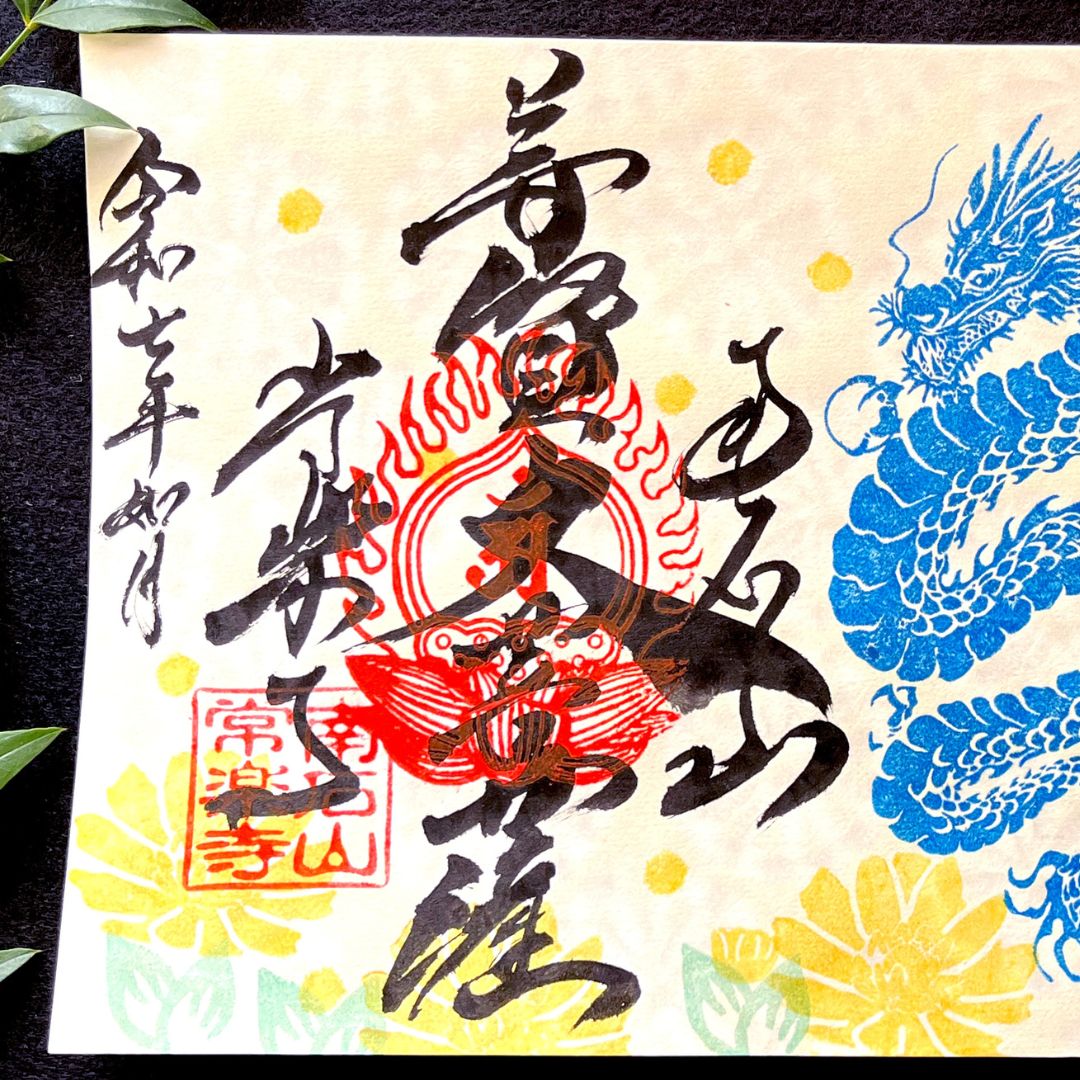 南石山
普賢大菩薩
常楽寺
令和七年如月
南石山
常楽寺